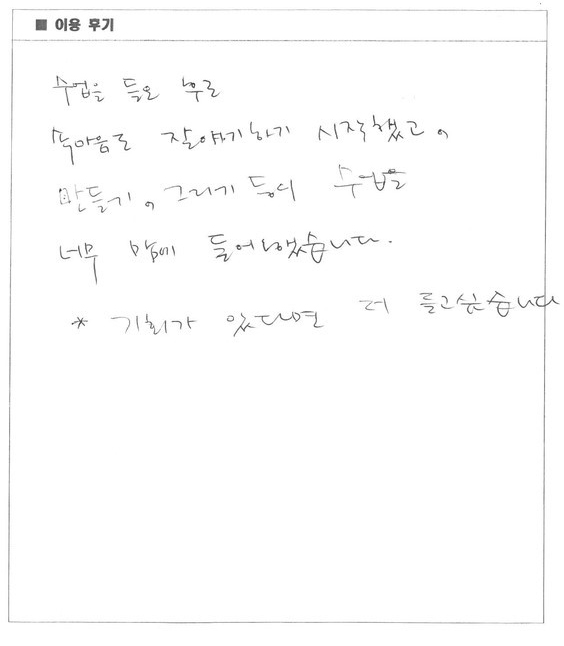 ■ 이용 후기
수업을 들은 후로
속마음도 잘얘기하기 시작했고,
만들기, 그리기 등의 수업을
너무 맘에 들어했습니다.
* 기회가 있다면 더 듣고싶습니다